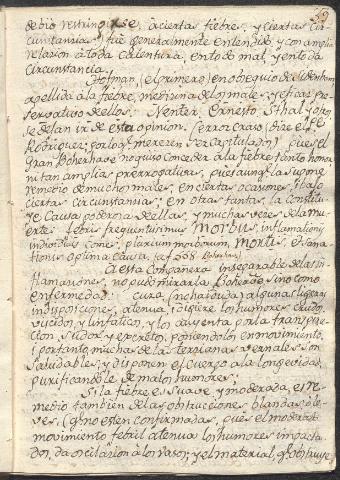 debio restringirse aciertas fiebres, y ciertas cir
cunstancias) fue generalmente entendido, y con amplia
relacion à toda calentura, en todo mal, y en toda
circunstancia.
Hofman, (el primero) en obsequio de Sidenham
apellida à la fiebre, medicina de los males, y eficaz pre
servativo de ellos: Nenter, Ernesto, Sthal, y otros
se dejan ir de esta opinion. (error craso, dize el
Rodriguez, por lo q merecen ser capitulados) pues el
gran Boherhave no quiso conceder à la fiebre tanto honor
ni tan amplias prerrogativas, pues aunq la supone
remedio de muchos males, en ciertas ocasiones, i bajo
ciertas circunstancias; en otras tantas, la constitu-
ye causa poderosa de ellas, y muchas veses de la mu
erte: febris frequentissimus Morbus, inflamationis
individuus comes, plurium morborum, Mortis,
optima causa. (af. 558. Boherhav.)
A esta compañera inseparable de las in
flamaciones, no pudo mirarla Boherave, sino como
enfermedad: cura, (no hai duda) algunas ligeras
indisposiciones, atenua, i digiere los humores crudos,
vicidos, y linfaticos, y los aventa por la transpira
cion, sudor, y excretos, poniendolos en movimiento,
i por tanto muchas de las tercianas vernales son
saludables, y disponen el cuerpo a la longevidad,
purificandole de malos humores.
Si la fiebre es suave, y moderada, es re-
medio tambien de las obstrucciones blandas, o le
ves, (q no esten confirmadas, pues el moderado
movimiento febril atenua los humores impacta
dos, da oscilacion à los vasos, y el material, q obstruye